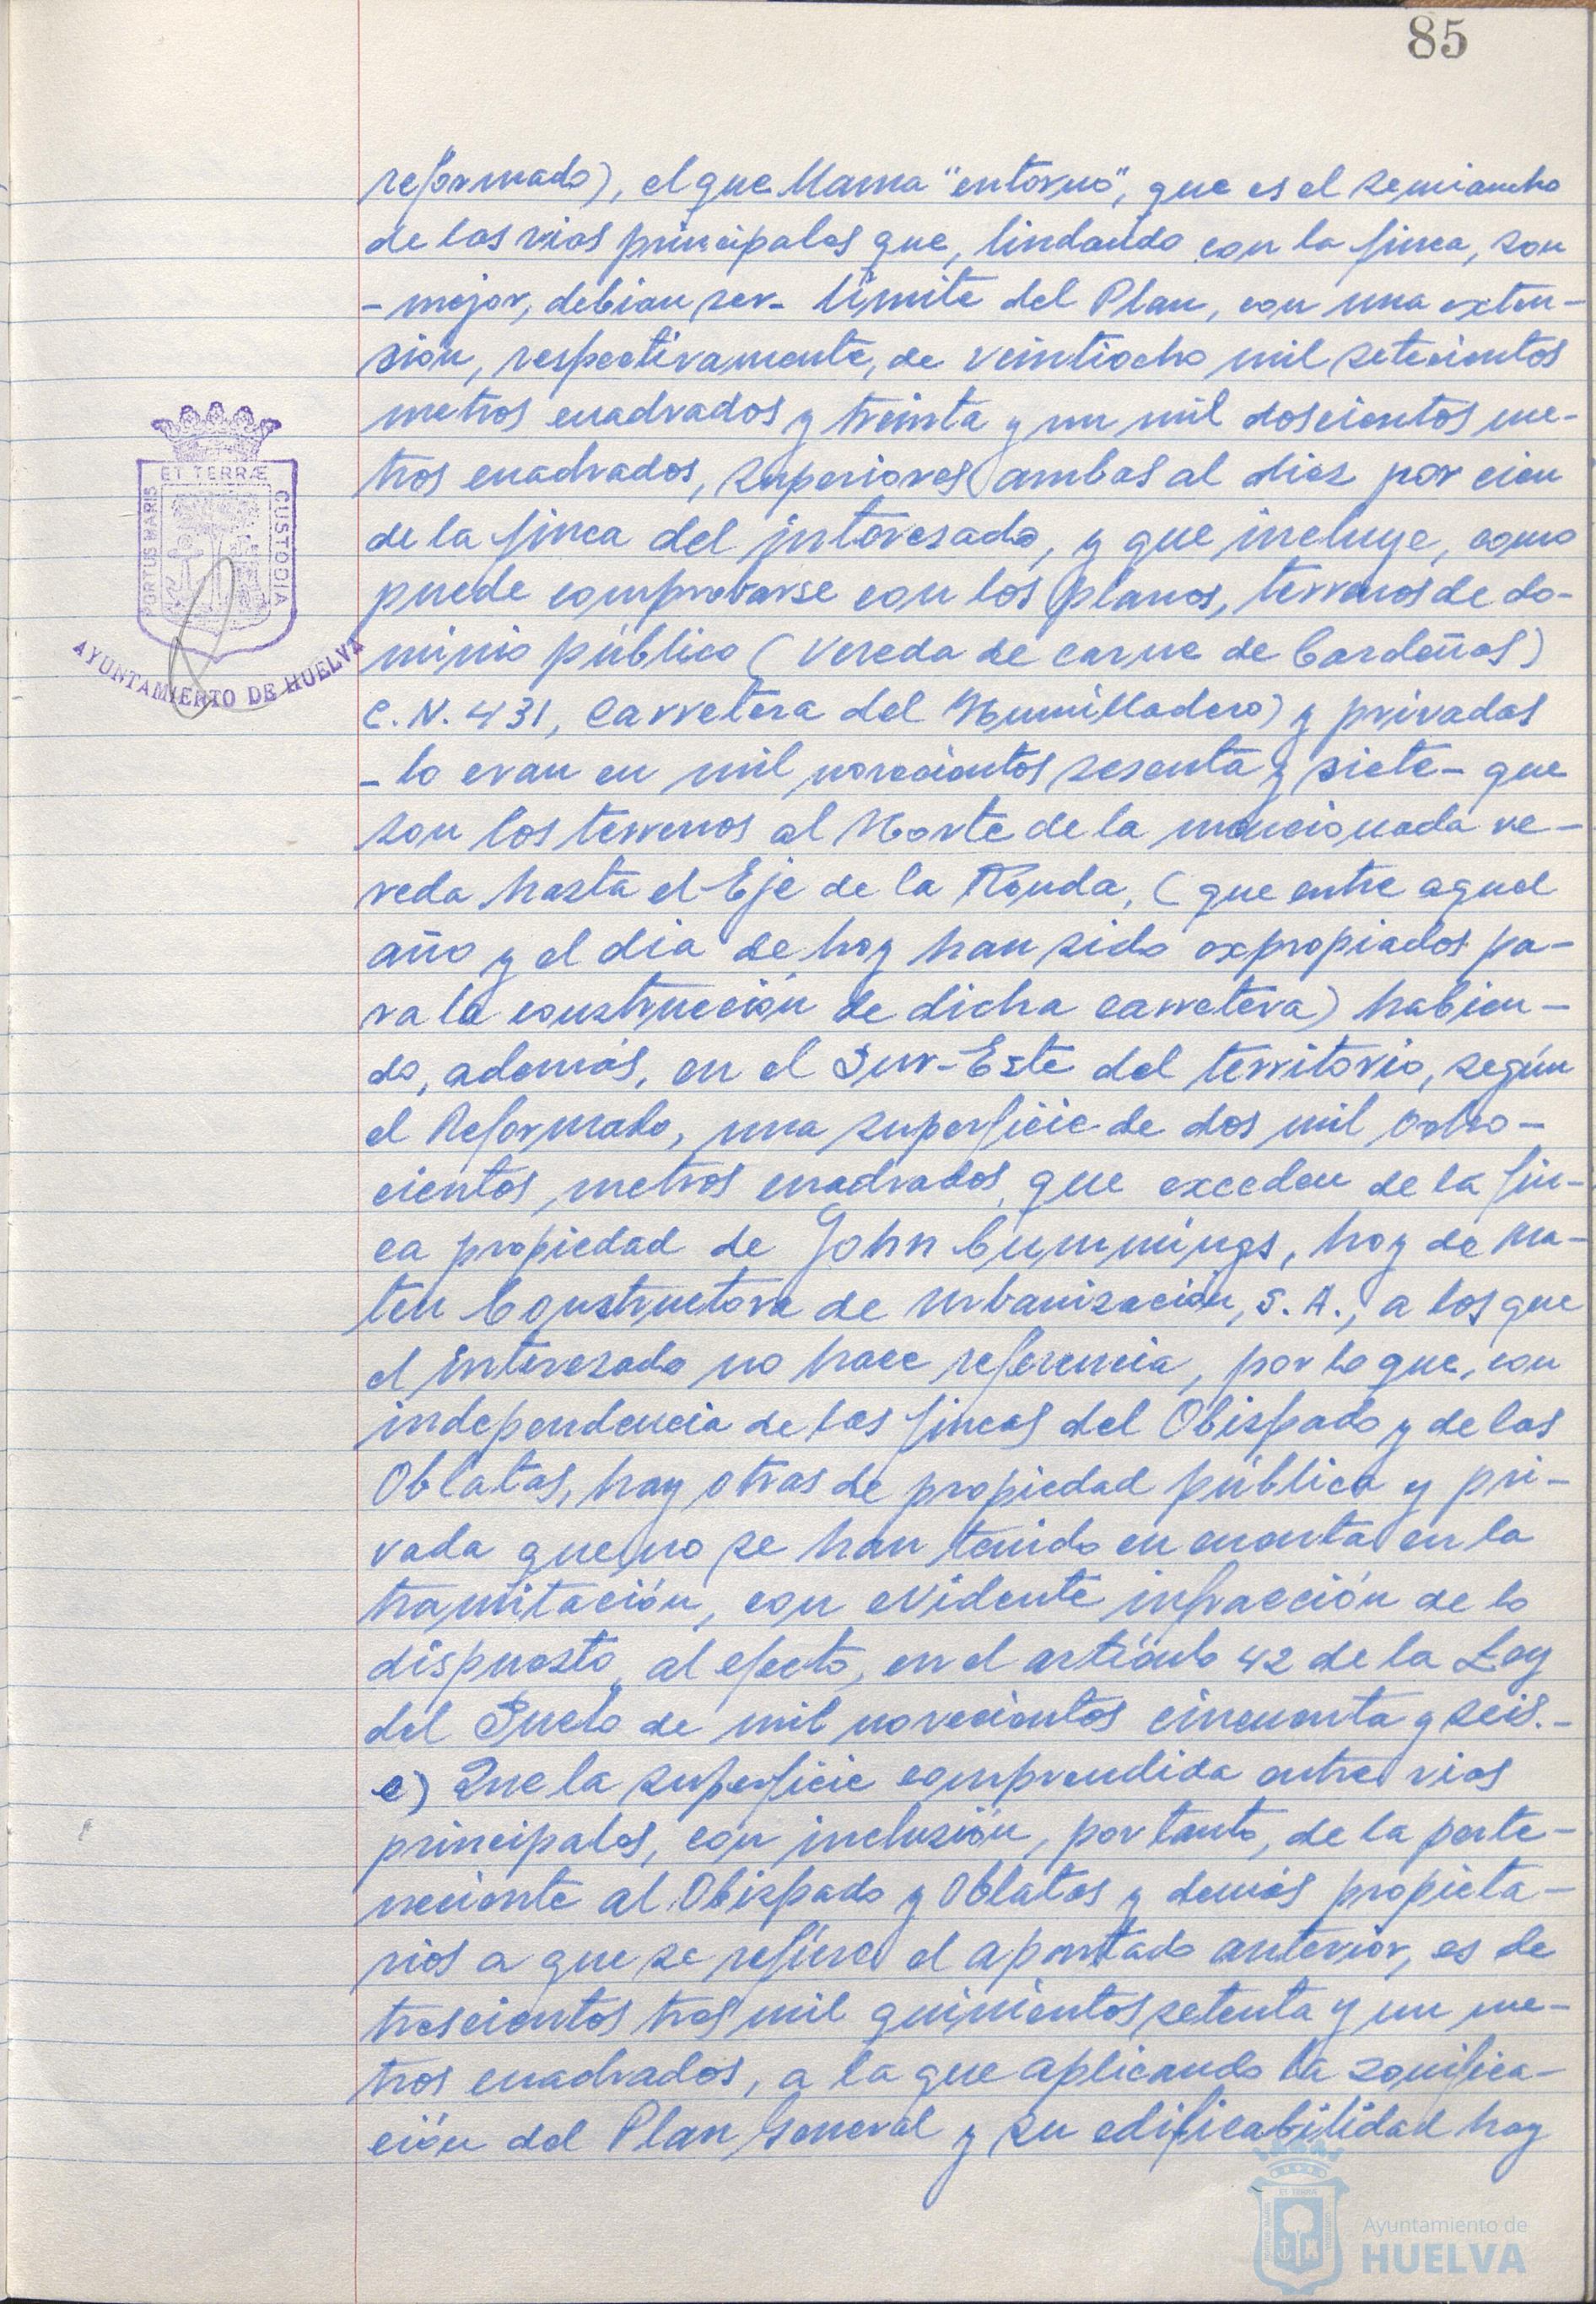 85
reformado), el que llama "entorno", que es el semiancho
de las vias principales que, lindando con la finca, son
- mejor, debian ser - límite del Plan, con una exten-
sión, respectivamente, de veintiocho mil setecientos
metros cuadrados y treinta y un mil doscientos me-
tros cuadrados, superiores ambas al diez por cien
de la finca del interesado, y que incluye, como
puede comprobarse con los planos, terrenos de do-
minio público (Vereda de carne de Cardeñas)
C.N. 431, Carretera del Humilladero) y privados
- lo eran en mil novecientos sesenta y siete - que
son los terrenos al Norte de la mencionada ve-
reda hasta el Eje de la Ronda, (que entre aquel
año y el dia de hoy han sido expropiados pa-
ra la construcción de dicha carretera) habien-
do, además, en el Sur-Este del territorio, según
el Reformado, una superficie de dos mil ocho-
cientos metros cuadrados, que exceden de la fin-
ca propiedad de John Cummings, hoy de Ma-
ten Constructora de Urbanización, S.A., a los que
el interesado no hace referencia, por lo que, con
independencia de las fincas del Obispado y de las
Oblatas, hay otras de propiedad pública y pri-
vada que no se han tenido en cuenta en la
tramitación, con evidente infracción de lo
dispuesto, al efecto, en el artículo 42 de la Ley
del Suelo de mil novecientos cincuenta y seis.-
c) Que la superficie comprendida entre vias
principales, con inclusión, por tanto, de la perte-
neciente al Obispado y Oblatas y demás propieta-
rios a que se refiere el apartado anterior, es de
trescientos tres mil quinientos setenta y un me-
tros cuadrados, a la que aplicando la zonifica-
ción del Plan General y su edificabilidad hay
PORTUS MARIS
ET TERRÆ
CUSTODIA
AYUNTAMIENTO DE HUELVA
Ayuntamiento de
HUELVA